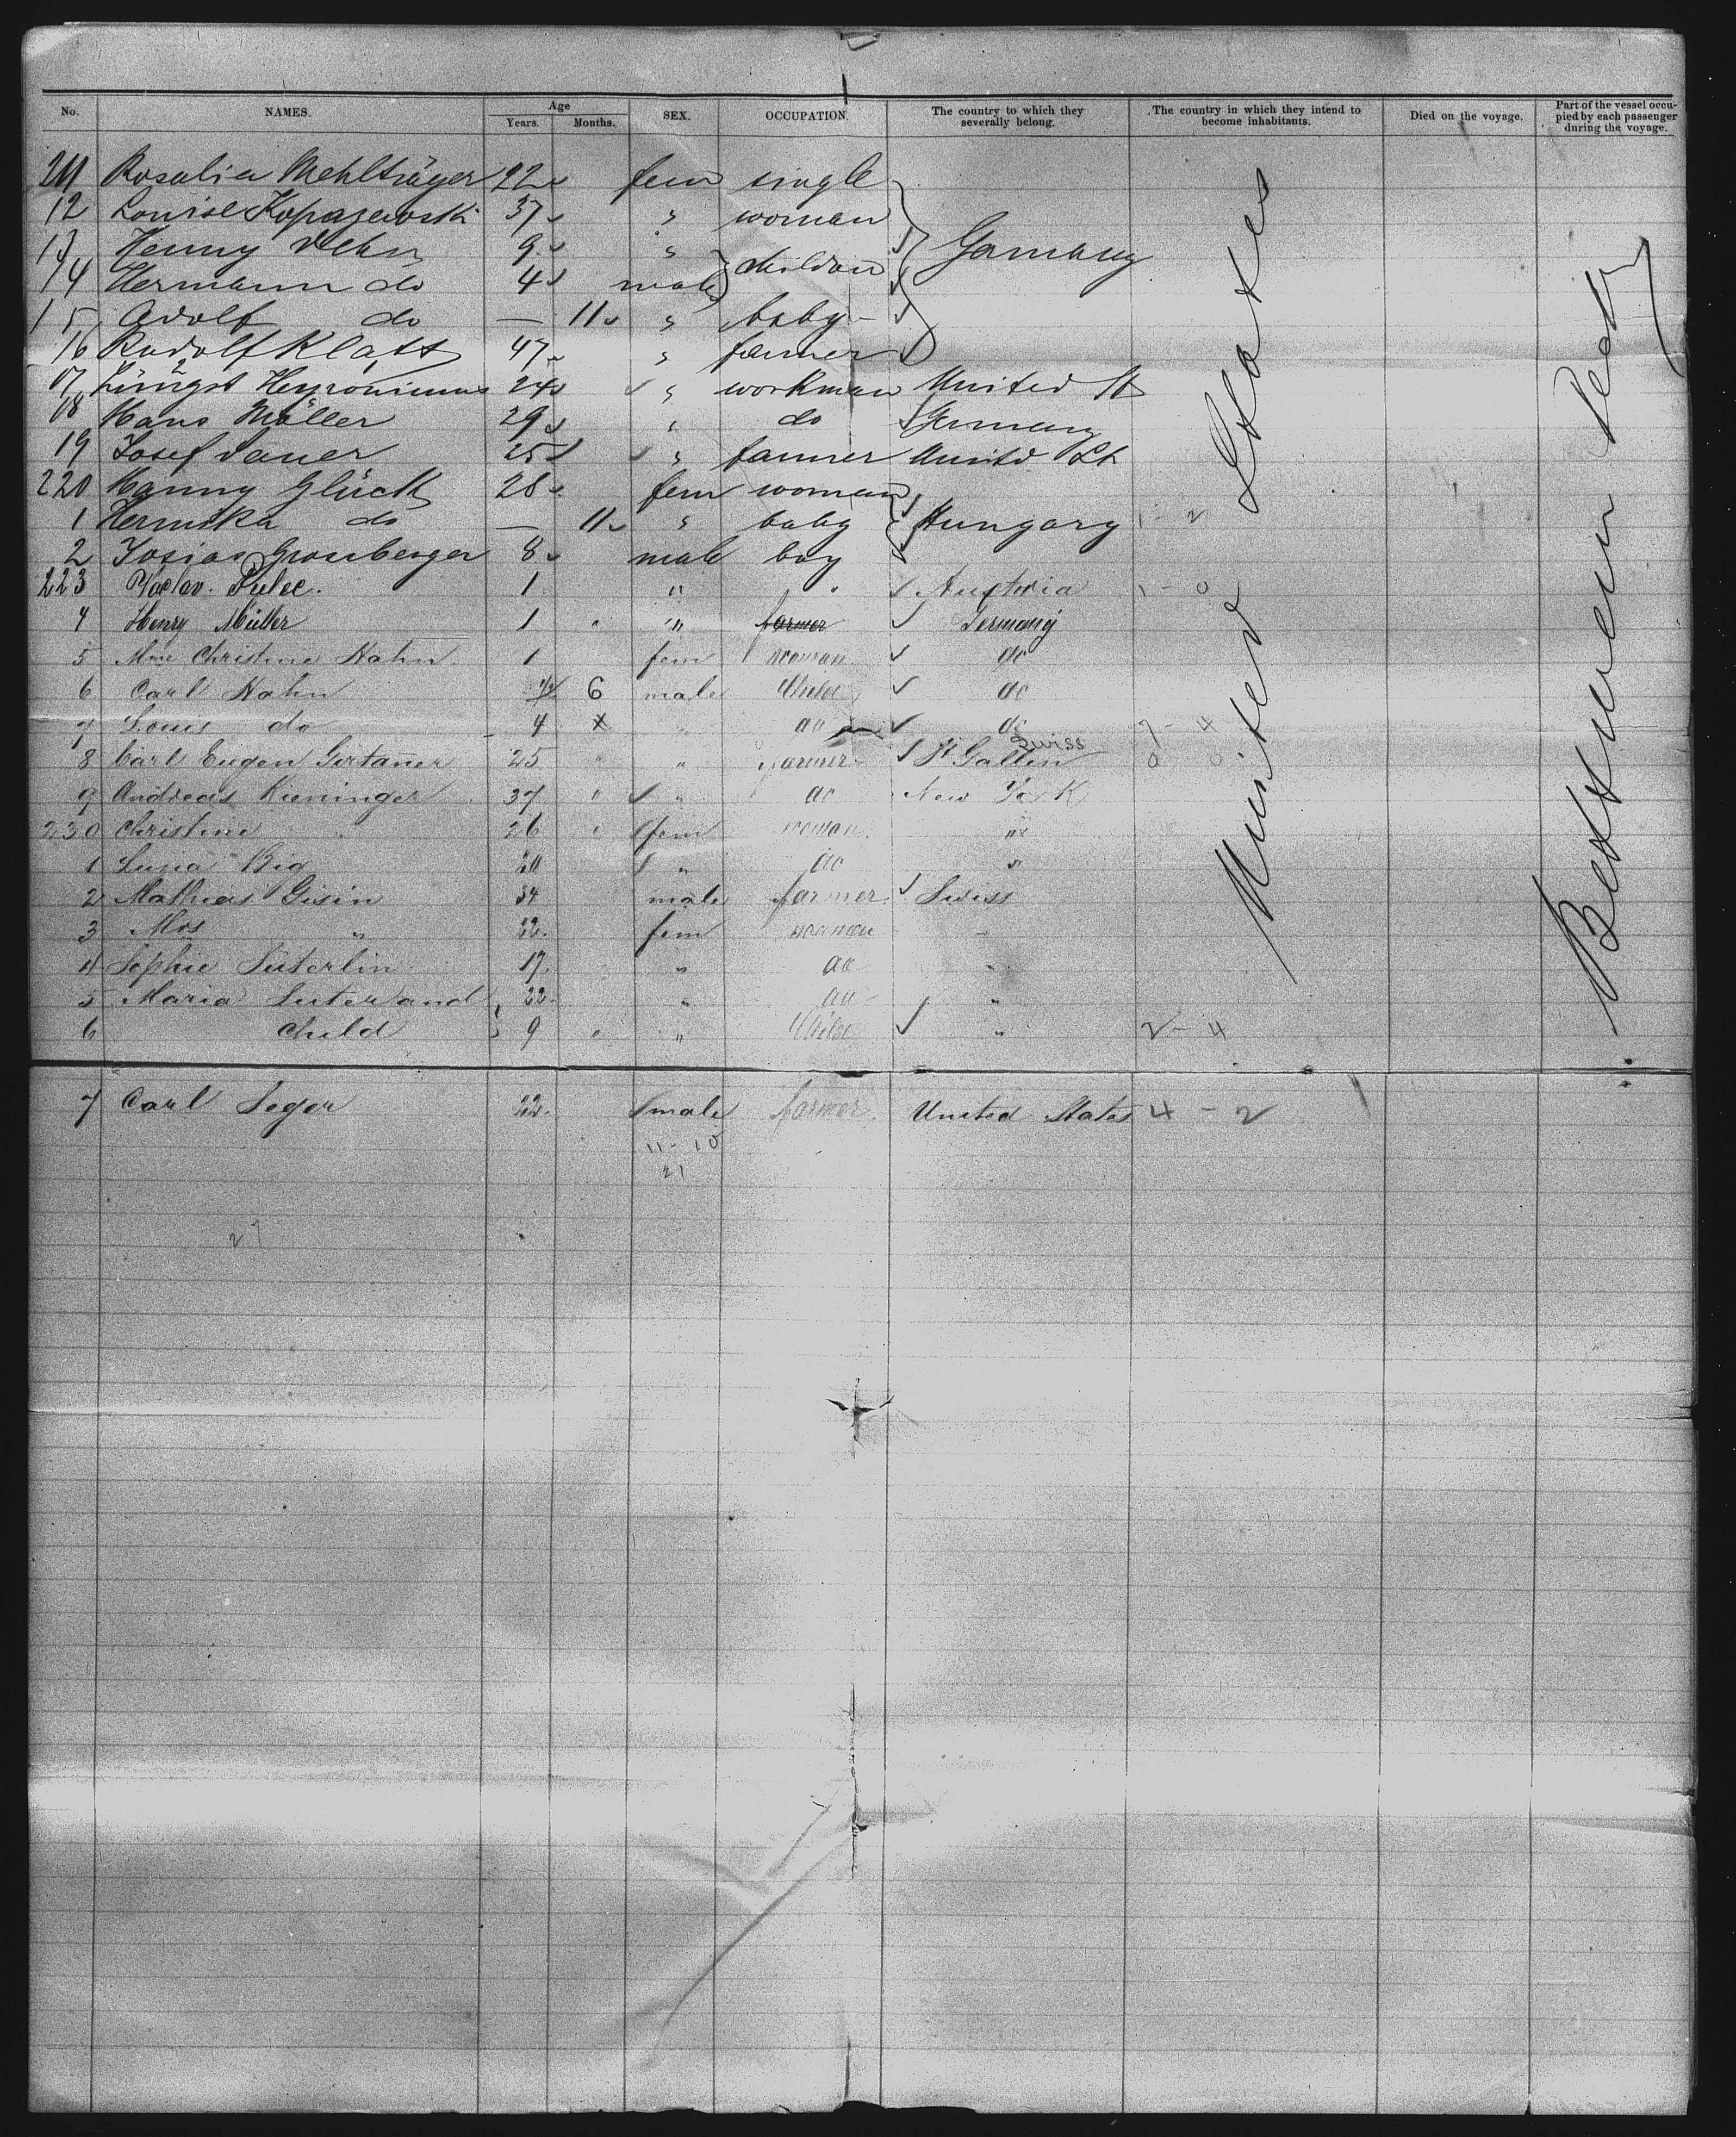 No. NAMES. Age Years. Months. SEX. OCCUPATION. The country to which they severally belong. The country in which they intend to become inhabitants. Died on the voyage. Part of the vessel occupied by each passenger during the voyage.
211 Rosalia Mehlträger 22 fem single
12 Louise Kopazewski 37 " woman
13 Henny Dehn 9 " children Germany
14 Hermann do 4 male
15 Adolf do — 11 " baby
16 Rudolf Klatt 47 " farmer
17 Hyronimus 24 " workman United St
18 Hans Möller 29 " do Germany
19 Josef 25 " farmer United St
220 Hanny Glück 28 fem woman
1 do — 11 " baby Hungary 1 - 2
2 Josias Gronberger 8 male boy
223 Vaclav. 1 " " Austria 1 - 0
4 Henry Müller 1 " " farmer Germany
5 Christine Hahn 1 fem woman do
6 Carl Hahn 6 male Child do
7 Louis do 4 " do do 7 - 4
8 Carl Eugen Girtaner 25 " " farmer St Gallen Swiss 0 0
9 Andreas Kieninger 37 " " do New York
230 Christine " 26 " fem woman "
1 20 " do "
2 Mathias Gisin 34 male farmer Swiss
3 " 22 fem woman "
4 Sophie Süterlin 17 " do "
5 Maria Suter and 22 " do "
6 child 9 " " Child " 2 - 4
7 Carl Seger 22 male farmer United States 4 - 2
11 - 10
21
21
United States
Between Deck